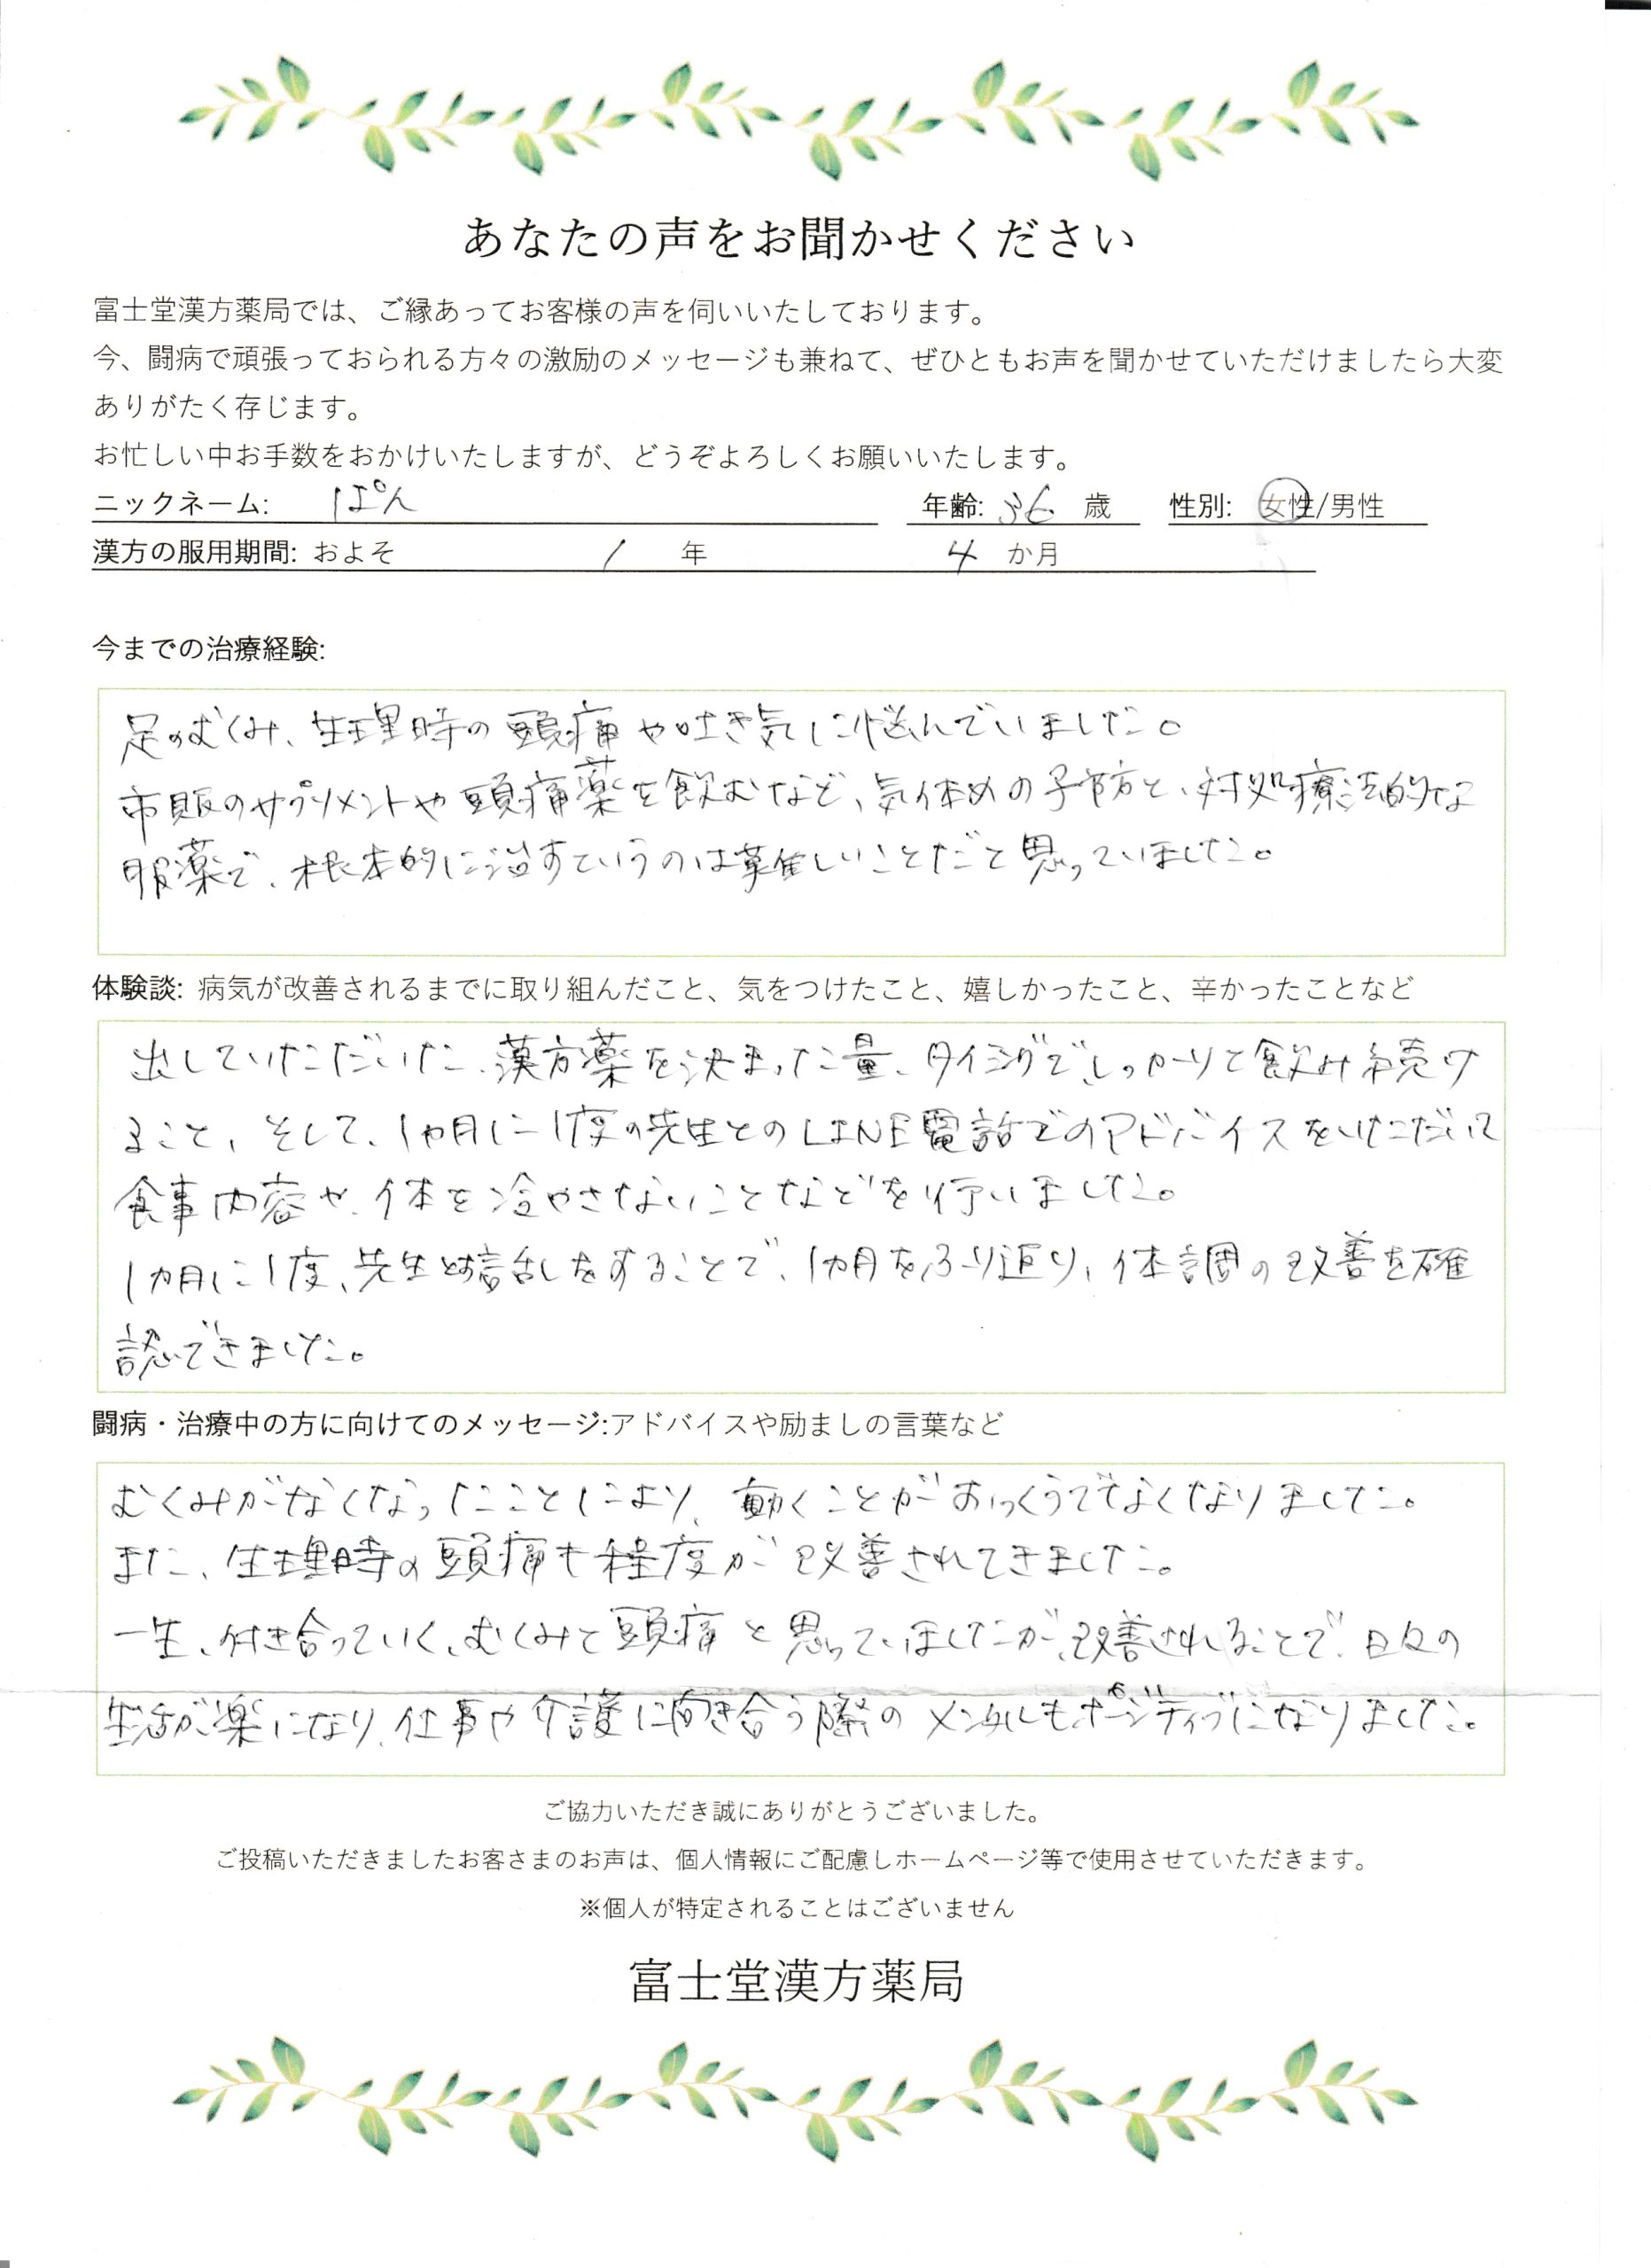 あなたの声をお聞かせください
富士堂漢方薬局では、ご縁あってお客様の声を伺いいたしております。
今、闘病で頑張っておられる方々の激励のメッセージも兼ねて、ぜひともお声を聞かせていただけましたら大変
ありがたく存じます。
お忙しい中お手数をおかけいたしますが、どうぞよろしくお願いいたします。
ニックネーム: ぽん 年齢: 36 歳 性別: 女性/男性
漢方の服用期間: およそ 1 年 4 か月
今までの治療経験:
足のむくみ、生理時の頭痛や吐き気に悩んでいました。
市販のサプリメントや頭痛薬を飲むなど、気休めの予防と、対処療法的な
服薬で、根本的に治すていうのは難しいことだと思っていました。
体験談: 病気が改善されるまでに取り組んだこと、気をつけたこと、嬉しかったこと、辛かったことなど
出していただいた、漢方薬を決まった量、タイミングで、しっかりと飲み続け
ること、そして、1ヵ月に1度の先生とのLINE電話でのアドバイスをいただいて
食事内容や、体を冷やさないことなどを行いました。
1ヵ月に1度、先生とお話しをすることで、1ヵ月をふり返り、体調の改善を確
認できました。
闘病・治療中の方に向けてのメッセージ:アドバイスや励ましの言葉など
むくみがなくなったことにより、動くことがおっくうでなくなりました。
また、生理時の頭痛も程度が改善されてきました。
一生、付き合っていく、むくみと頭痛と思っていましたが、改善されることで、日々の
生活が楽になり、仕事や介護に向き合う際のメンタルもポジティブになりました。
ご協力いただき誠にありがとうございました。
ご投稿いただきましたお客さまのお声は、個人情報にご配慮しホームページ等で使用させていただきます。
※個人が特定されることはございません
富士堂漢方薬局